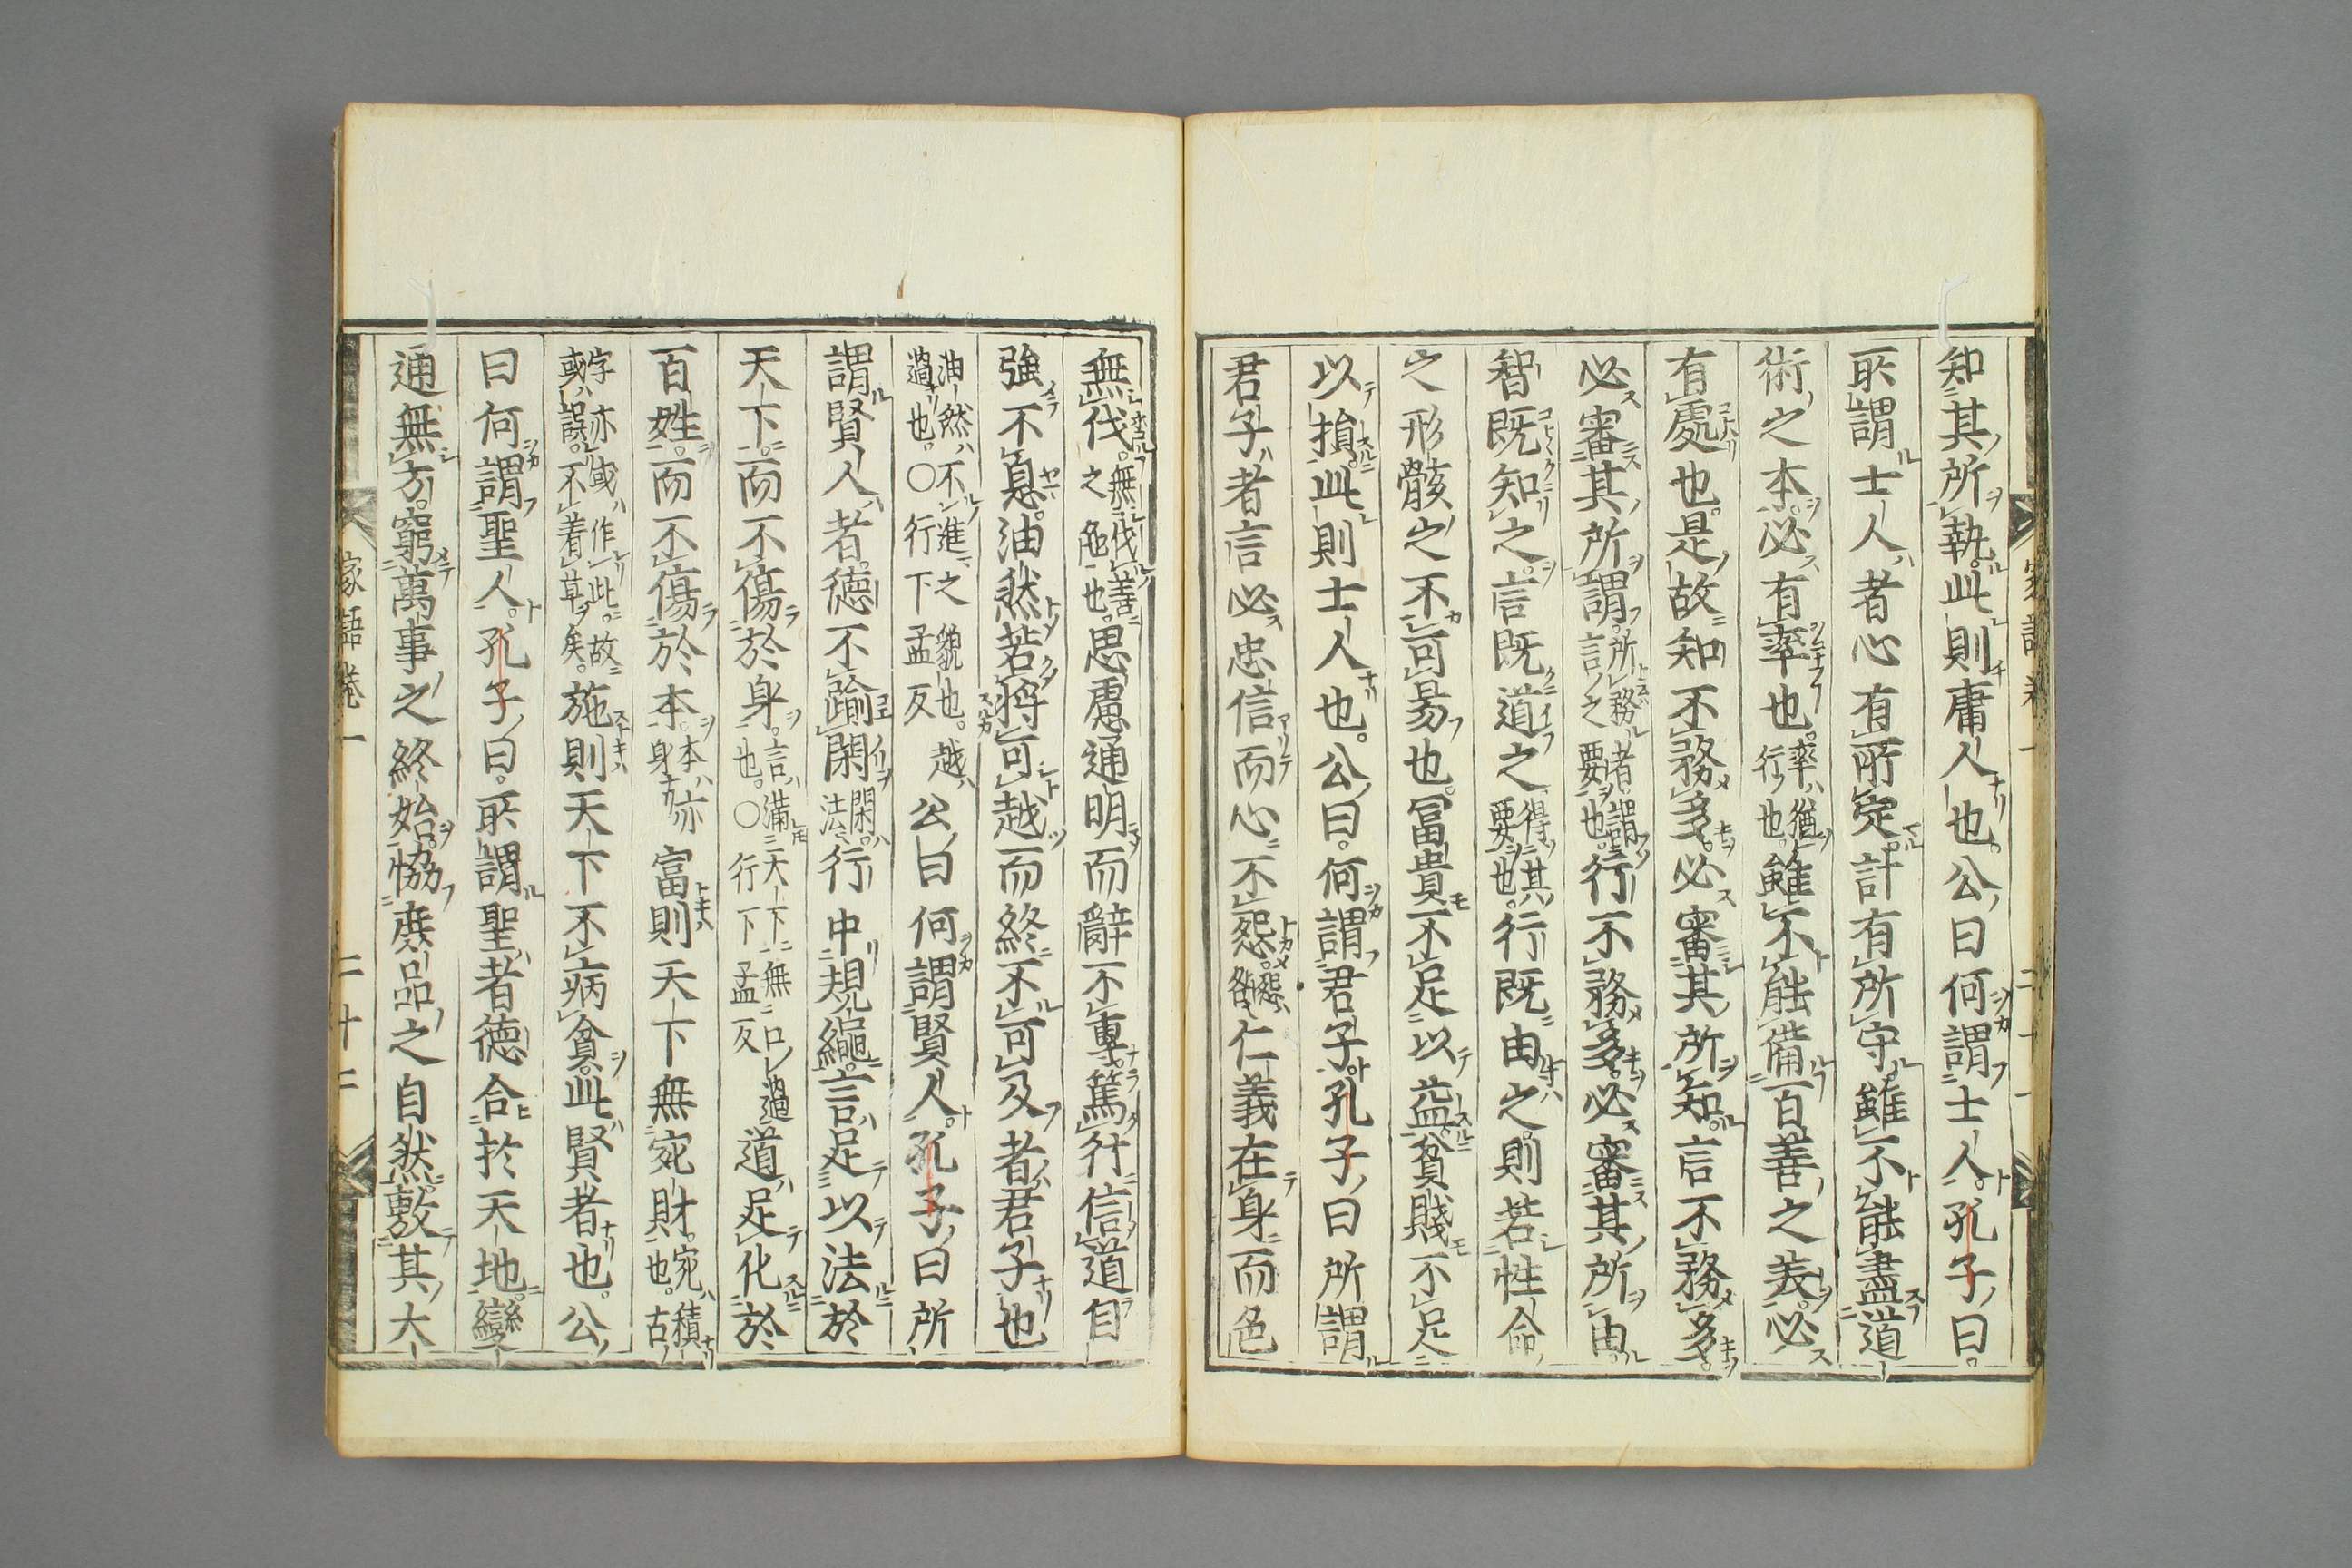 知其所執此則庸人也公曰何謂士人孔子曰
所謂士人者心有所定計有所守雖不能盡道
術之本必有率也率猶行也雖不能備百善之義必
有處也是故知不務多必審其所知言不務多
必審其所謂所務者謂言之要也行不務多必審其所由
智既知之言既道之得其要也行既由之則若性命
之形骸之不可易也冨貴不足以益貧賤不足
以損此則士人也公曰何謂君子孔子曰所謂
君子者言必忠信而心不怨怨咎仁義在身而色
無伐無伐善之色也思慮通明而辭不專篤行信道自
強不息油然若將可越而終不可及者君子也
油然不進之貌也越過也○行下孟反公曰何謂賢人孔子曰所
謂賢人者德不踰閑閑法行中規繩言足以法於
天下而不傷於身言滿天下無口過也○行下孟反道足化於
百姓而不傷於本本亦身富則天下無宛財宛積也古
字亦或作此故或誤不着草矣施則天下不病貧此賢者也公
曰何謂聖人孔子曰所謂聖者德合於天地變
通無方窮萬事之終始恊庶品之自然敷其大
家語卷一 二十二